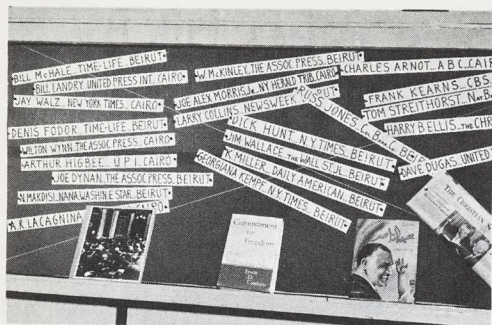 BILL McHALE..TIME-LIFE..BEIRUT.
BILL LANDRY. UNITED PRESS INT. CAIRO
JAY WALZ.. NEW YORK TIMES.. CAIRO.
DENIS FODOR..TIME-LIFE..BEIRUT.
WILTON WYNN..THE ASSOC PRESS..CAIRO.
ARTHUR HIGBEE.. U P I..CAIRO.
JOE DYNAN..THE ASSOC PRESS..BEIRUT
N.MAKDISI..NANA.WASHIN E STAR..BEIRUT
A.R. LACAGNINA
CAIRO
W McKINLEY..THE ASSOC PRESS..BEIRUT.
JOE ALEX MORRIS Jr..NY HERALD TRIB.CAIRO
LARRY COLLINS NEWSWEEK
RUSS JONES.. C..B...C.. BEI
DICK HUNT. N.Y TIMES. BEIRUT
JIM WALLACE. THE WALL ST. JL. BEIRUT.
K MILLER.. DAILY AMERICAN.. BEIRUT
GEORGIANA KEMPE.. N.Y TIMES.. BEIRUT
CHARLES ARNOT.. A B C..CAIR
FRANK KEARNS..CBS.
TOM STREITHORST.. N..B
HARRY B ELLIS..THE CHR
DAVE DUGAS.. UNITED
THE CHRISTIAN
Commitment
to
Freedom
Erwin
D.
Canham